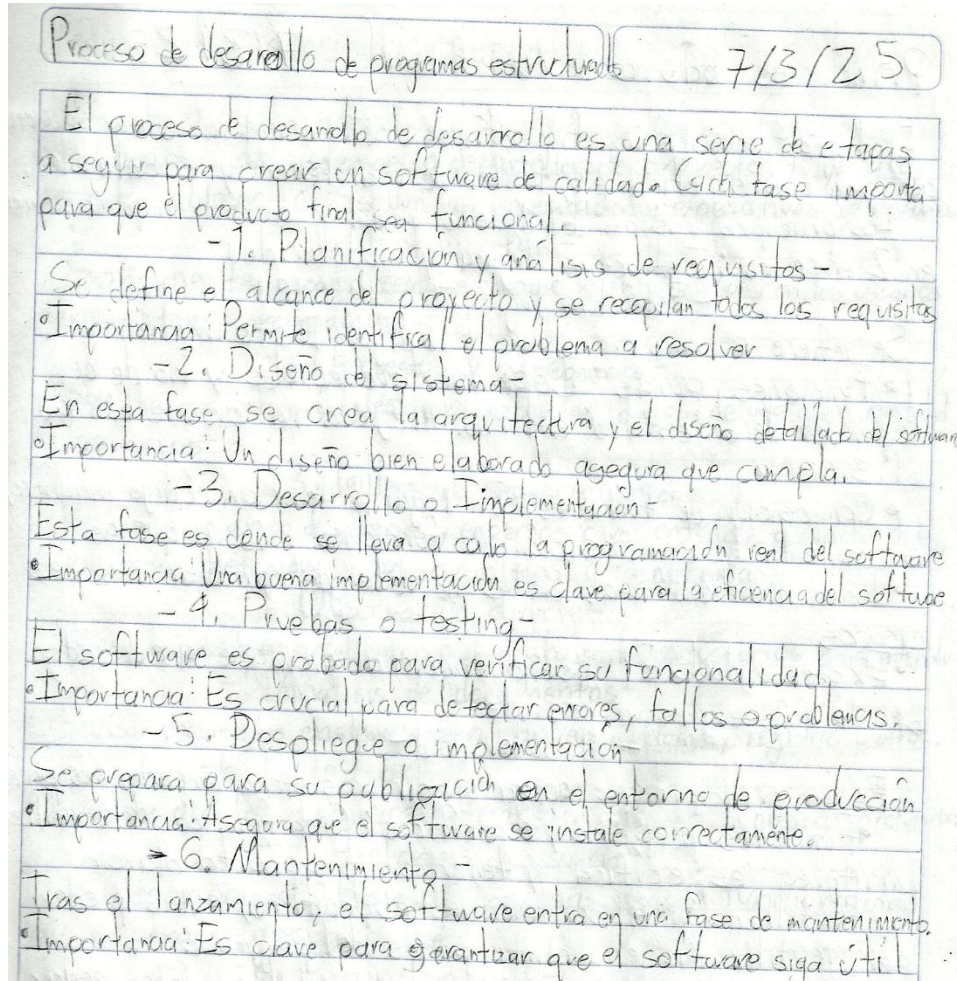 Proceso de desarollo de programas estructurados 7/3/25
El proceso de desarrollo de desarrollo es una serie de etapas
a seguir para crear un software de calidad. Cada fase importa
para que el producto final sea funcional.
-1. Planificación y análisis de requisitos-
Se define el alcance del proyecto y se recopilan todos los requisitos
•Importancia: Permite identifical el problema a resolver
-2. Diseño del sistema-
En esta fase se crea la arquitectura y el diseño detallado del software
•Importancia: Un diseño bien elaborado asegura que cumpla.
-3. Desarrollo o Implementación-
Esta fase es donde se lleva a cabo la programación real del software
•Importancia: Una buena implementación es clave para la eficencia del software
-4. Pruebas o testing-
El software es probado para verificar su funcionalidad.
•Importancia: Es crucial para detectar errores, fallos o problemas.
-5. Despliegue o implementación-
Se prepara para su publicación en el entorno de producción
•Importancia: Asegura que el software se instale correctamente.
-6. Mantenimiento-
Tras el lanzamiento, el software entra en una fase de mantenimiento.
•Importancia: Es clave para garantizar que el software siga útil